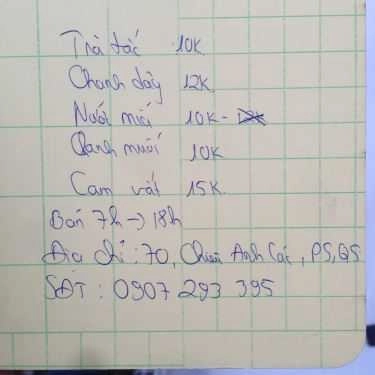 Trà tắc 10K
Chanh dây 12K
Nước mía 10K -
Chanh muối 10K
Cam vắt 15K
Bán 7h → 18h
Địa chỉ : 70, Chiêu Anh Các, P5, Q5
SĐT : 0907 293 395